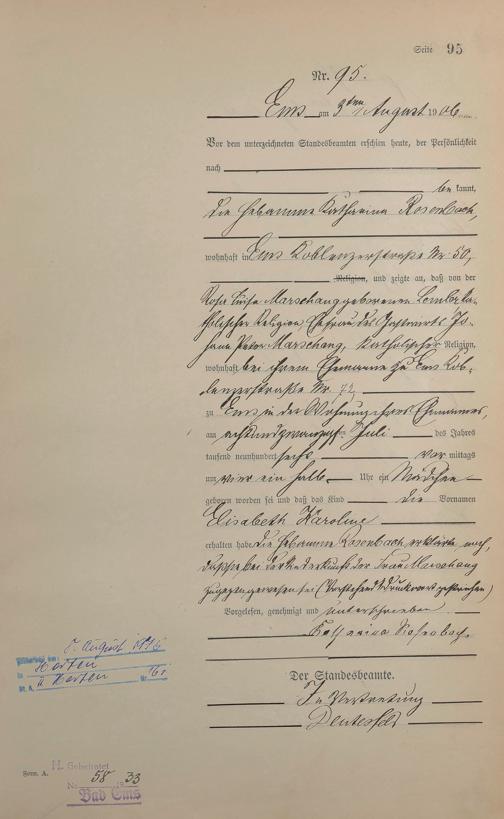 Seite 95
Nr. 95.
Ems am 3ten August 1906
Vor dem unterzeichneten Standesbeamten erschien heute, der Persönlichkeit
nach
bekannt,
die Hebamme Katharina Rosenbach,
wohnhaft in Ems Koblenzerstraße Nr. 50,
Religion, und zeigte an, daß von der
Rosa Luise Marschang geborenen ka-
tholischer Religion, Ehefrau des Gastwirts Jo-
hann Peter Marschang, katholischer Religion,
wohnhaft bei ihrem Ehemanne zu Ems Kob-
lenzerstraße Nr. 72
zu Ems in der Wohnung ihres Ehemannes,
am achtundzwanzigsten Juli des Jahres
tausend neunhundert sechs vormittags
um vier ein halb Uhr ein Mädchen
geboren worden sei und daß das Kind die Vornamen
Elisabeth Karoline
erhalten habe. Die Hebamme Rosenbach erklärte noch,
daß sie bei der Niederkunft der Frau Marschang
zugegen gewesen sei (Vorstehend Druckwort gestrichen)
Vorgelesen, genehmigt und unterschrieben
Katharina Rosenbach
Der Standesbeamte.
In Vertretung
8. August 1976
Herten
Herten
Form. A.
H. Geheiratet
Nr. 58 1933
Bad Ems